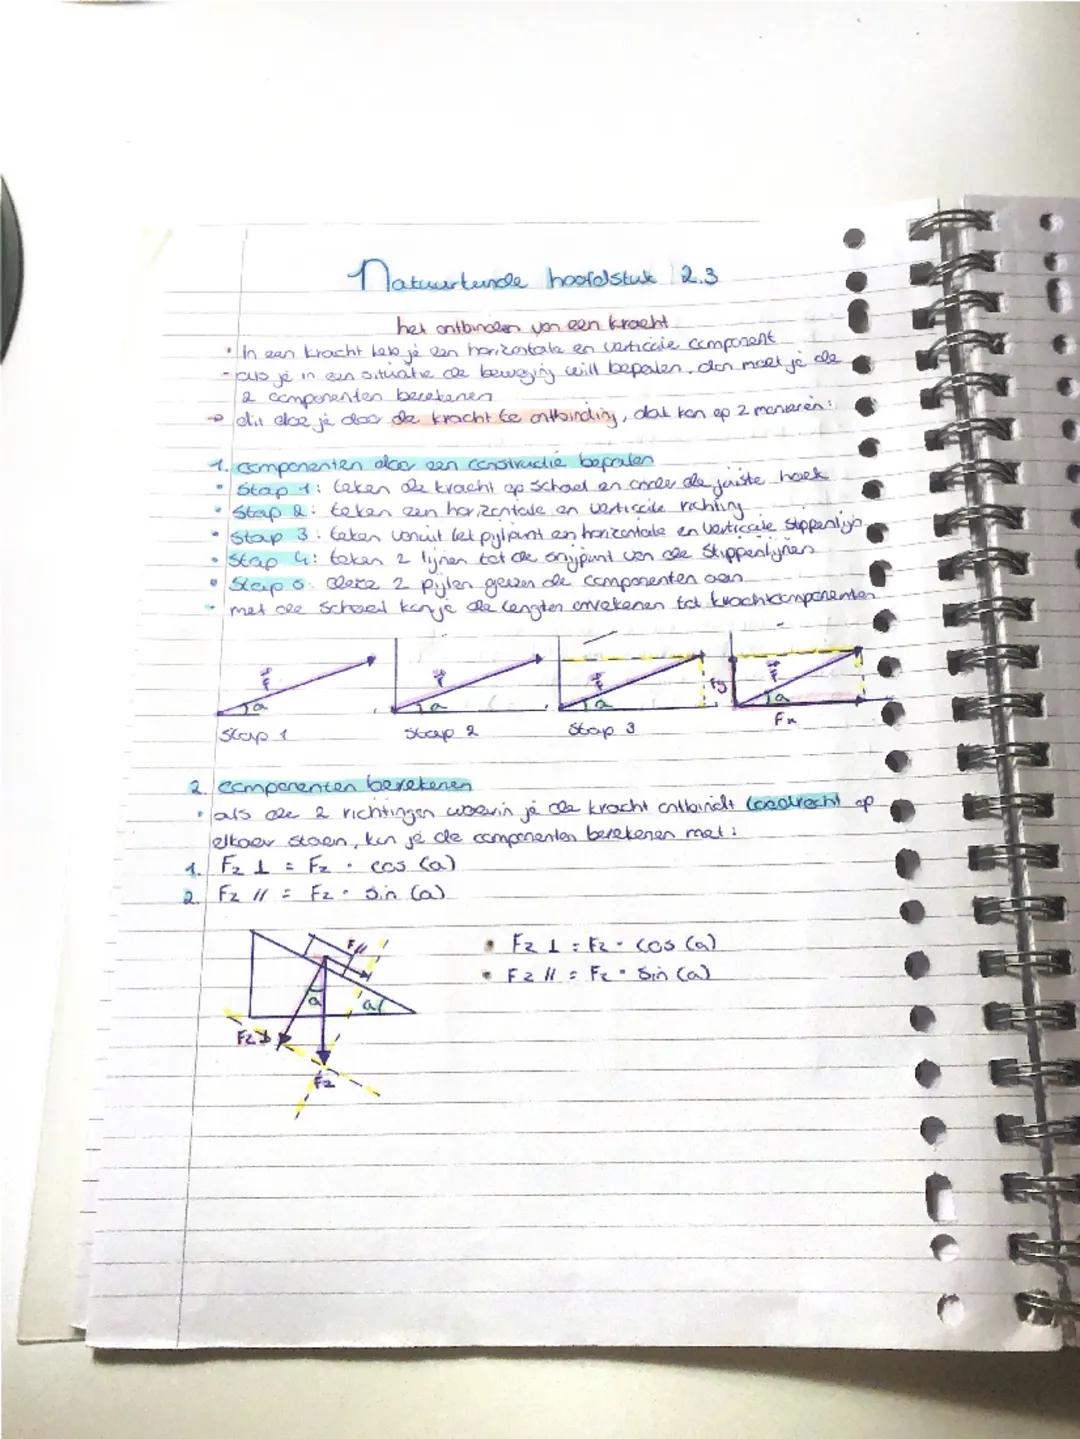 Natuurkunde hoofdstuk 2.3
het ontbinden van een kracht
• In een kracht heb je een horizontale en verticale component
- als je in een situatie de beweging will bepalen, dan moet je de
2 componenten berekenen
→ dit doe je door de kracht te ontbinding, dat kan op 2 manieren:
1. componenten door een constructie bepalen
• Stap 1: teken de kracht op schaal en onder de juiste hoek
• Stap 2: teken een horizontale en verticale richting
• Stap 3: teken vanuit het pijlpunt en horizontale en verticale stippenlijn
• Stap 4: teken 2 lijnen tot de snijpunt van de stippenlijnen
• Stap 5: Deze 2 pijlen geven de componenten aan
• met de schaal kan je de lengten omrekenen tot krachtcomponenten
F a F a F a Fy F a
Fx
Stap 1 Stap 2 Stap 3
2. componenten berekenen
• als de 2 richtingen waarin je de kracht ontbindt loodrecht op
elkaar staan, kun je de componenten berekenen met:
1. Fz ⊥ = Fz · cos (a)
2. Fz // = Fz · sin (a)
F//
a a
Fz⊥
Fz
• Fz ⊥ = Fz · cos (a)
• Fz // = Fz · sin (a)